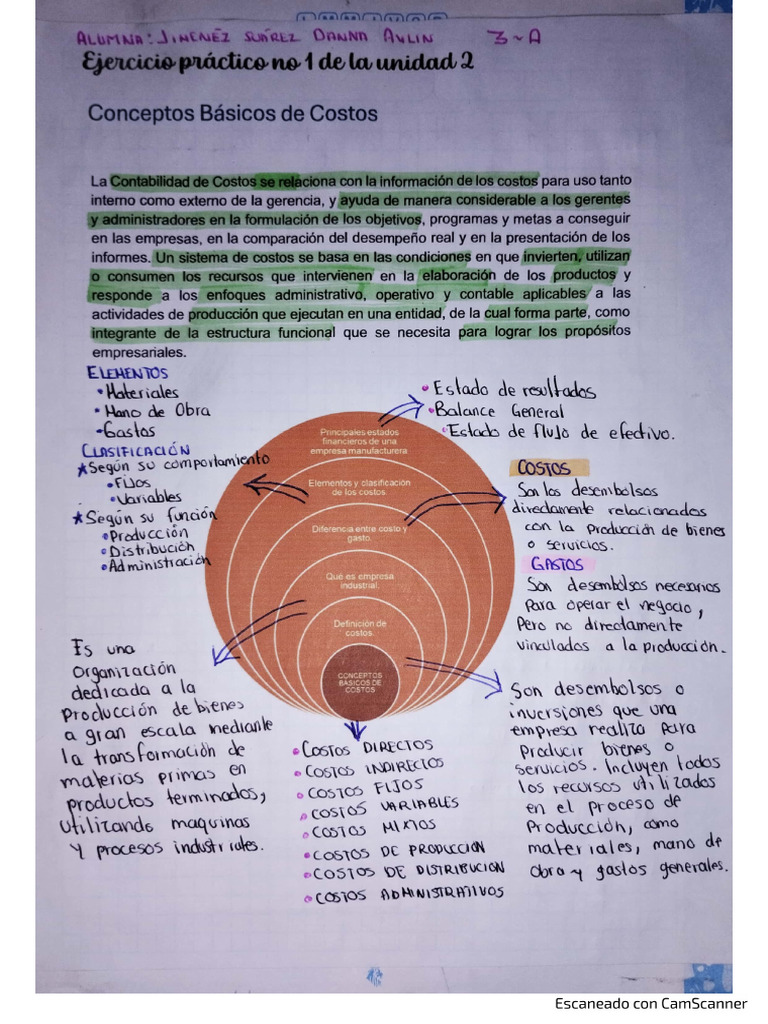 ALUMNA: JIMENÉZ SUÁREZ DANNA AYLIN 3-A
Ejercicio práctico no 1 de la unidad 2
Conceptos Básicos de Costos
La Contabilidad de Costos se relaciona con la información de los costos para uso tanto
interno como externo de la gerencia, y ayuda de manera considerable a los gerentes
y administradores en la formulación de los objetivos, programas y metas a conseguir
en las empresas, en la comparación del desempeño real y en la presentación de los
informes. Un sistema de costos se basa en las condiciones en que invierten, utilizan
o consumen los recursos que intervienen en la elaboración de los productos y
responde a los enfoques administrativo, operativo y contable aplicables a las
actividades de producción que ejecutan en una entidad, de la cual forma parte, como
integrante de la estructura funcional que se necesita para lograr los propósitos
empresariales.
ELEMENTOS
• Materiales
• Mano de Obra
• Gastos
CLASIFICACIÓN
★ Según su comportamiento
• Fijos
• Variables
★ Según su función
• Producción
• Distribución
• Administración
• Estado de resultados
• Balance General
• Estado de flujo de efectivo.
Principales estados
financieros de una
empresa manufacturera.
Elementos y clasificación
de los costos.
Diferencia entre costo y
gasto.
Qué es empresa
industrial.
Definición de
costos.
CONCEPTOS
BÁSICOS DE
COSTOS
COSTOS
Son los desembolsos
directamente relacionados
con la Producción de bienes
o servicios.
GASTOS
Son desembolsos necesarios
Para operar el negocio,
Pero no directamente
vinculados a la producción.
Es una
Organización
dedicada a la
Producción de bienes
a gran escala mediante
la transformación de
materias primas en
productos terminados,
Utilizando maquinas
Y procesos industriales.
• COSTOS DIRECTOS
• COSTOS INDIRECTOS
• COSTOS FIJOS
• COSTOS VARIABLES
• COSTOS MIXTOS
• COSTOS DE PRODUCCION
• COSTOS DE DISTRIBUCION
• COSTOS ADMINISTRATIVOS
Son desembolsos o
inversiones que una
empresa realiza para
Producir bienes o
servicios. Incluyen todos
los recursos utilizados
en el Proceso de
Producción, como
materiales, mano de
Obra y gastos generales.
Escaneado con CamScanner